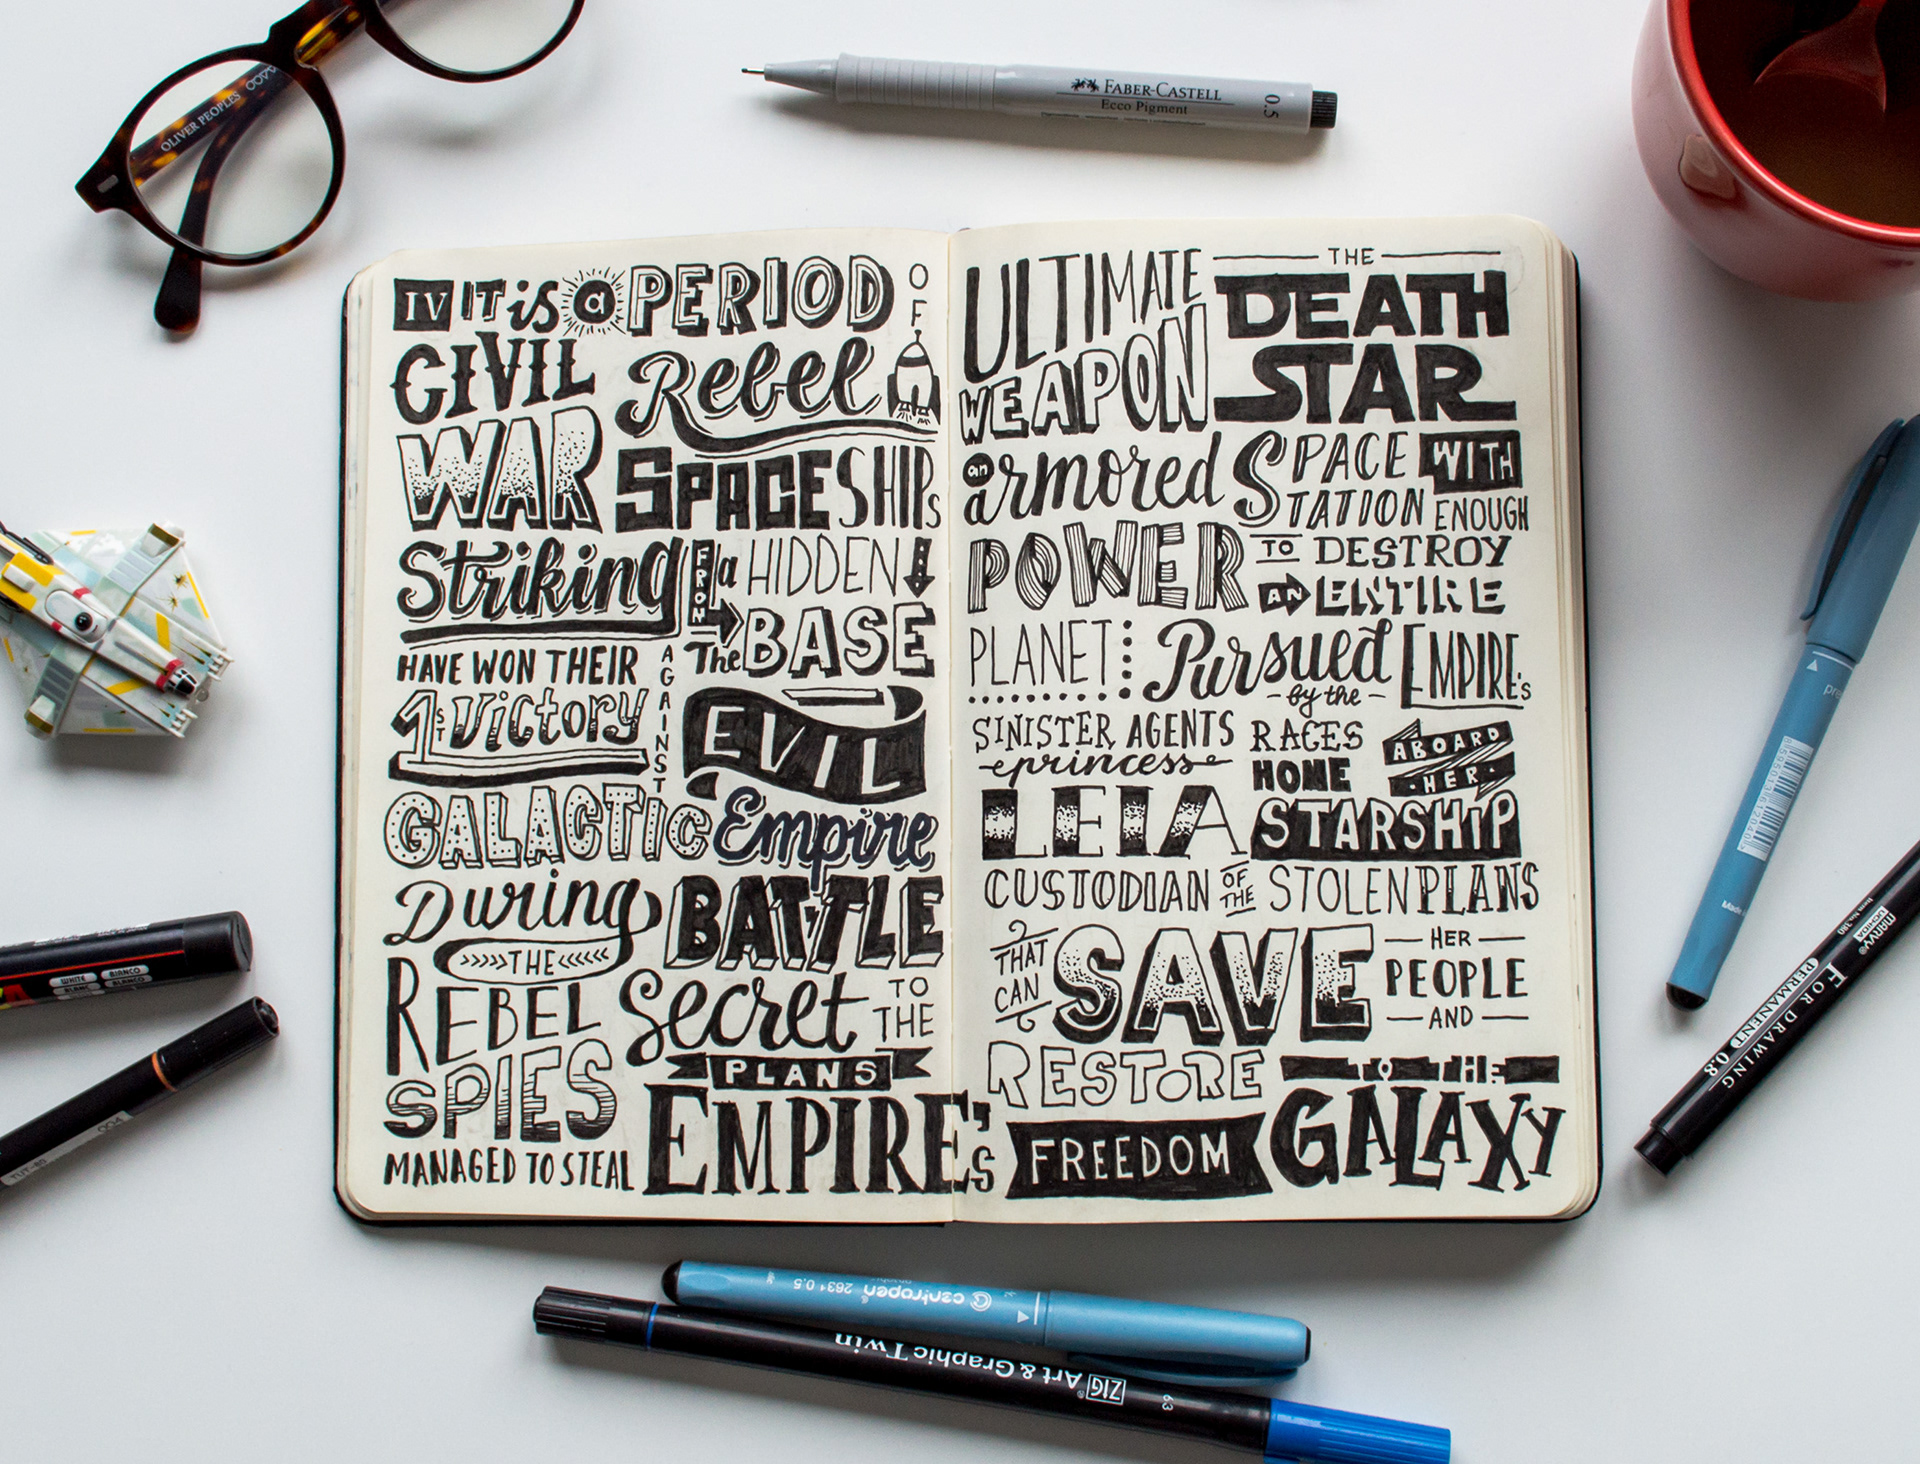 OLIVER PEOPLES
FABER-CASTELL
Ecco Pigment
0.5
IV IT is a PERIOD OF
CIVIL
WAR
Rebel
SPACESHIPS
Striking
FROM a HIDDEN
BASE
HAVE WON THEIR
1ST Victory
AGAINST
The
EVIL
GALACTIC Empire
During
THE
BATTLE
REBEL
SPIES
MANAGED TO STEAL
Secret
TO THE
PLANS
EMPIRE'S
ULTIMATE
WEAPON
THE
DEATH
STAR
an armored
SPACE
STATION
WITH
ENOUGH
POWER
TO DESTROY
AN ENTIRE
PLANET
Pursued
by the
EMPIRE'S
SINISTER AGENTS
princess
LEIA
RACES
HOME
ABOARD
HER
STARSHIP
CUSTODIAN OF THE STOLEN PLANS
THAT
CAN
SAVE
HER
PEOPLE
AND
RESTORE
FREEDOM
TO THE
GALAXY
WHITE
BLANC
BIANCO
BLANCO
004
centropen 2631 0.5
ZIG Art & Graphic Twin
63
MARVY
UCHIDA
FOR DRAWING
PERMANENT 0.8